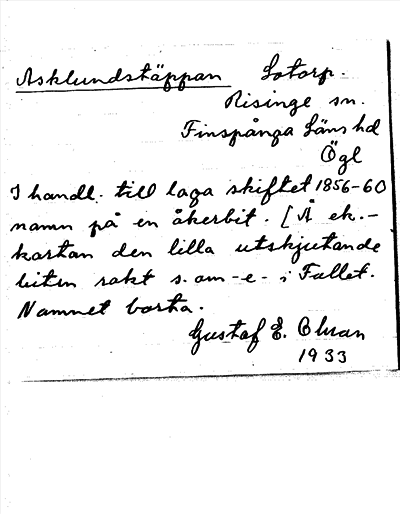 Asklundstäppan Sotorp.
Risinge sn.
Finspånga Läns hd
Ögl
I handl. till laga skiftet 1856-60
namn på en åkerbit. [Å ek.-
kartan den lilla utskjutande
biten rakt s. om -e- i Fallet.
Namnet borta.
Gustaf E. Olsson
1933